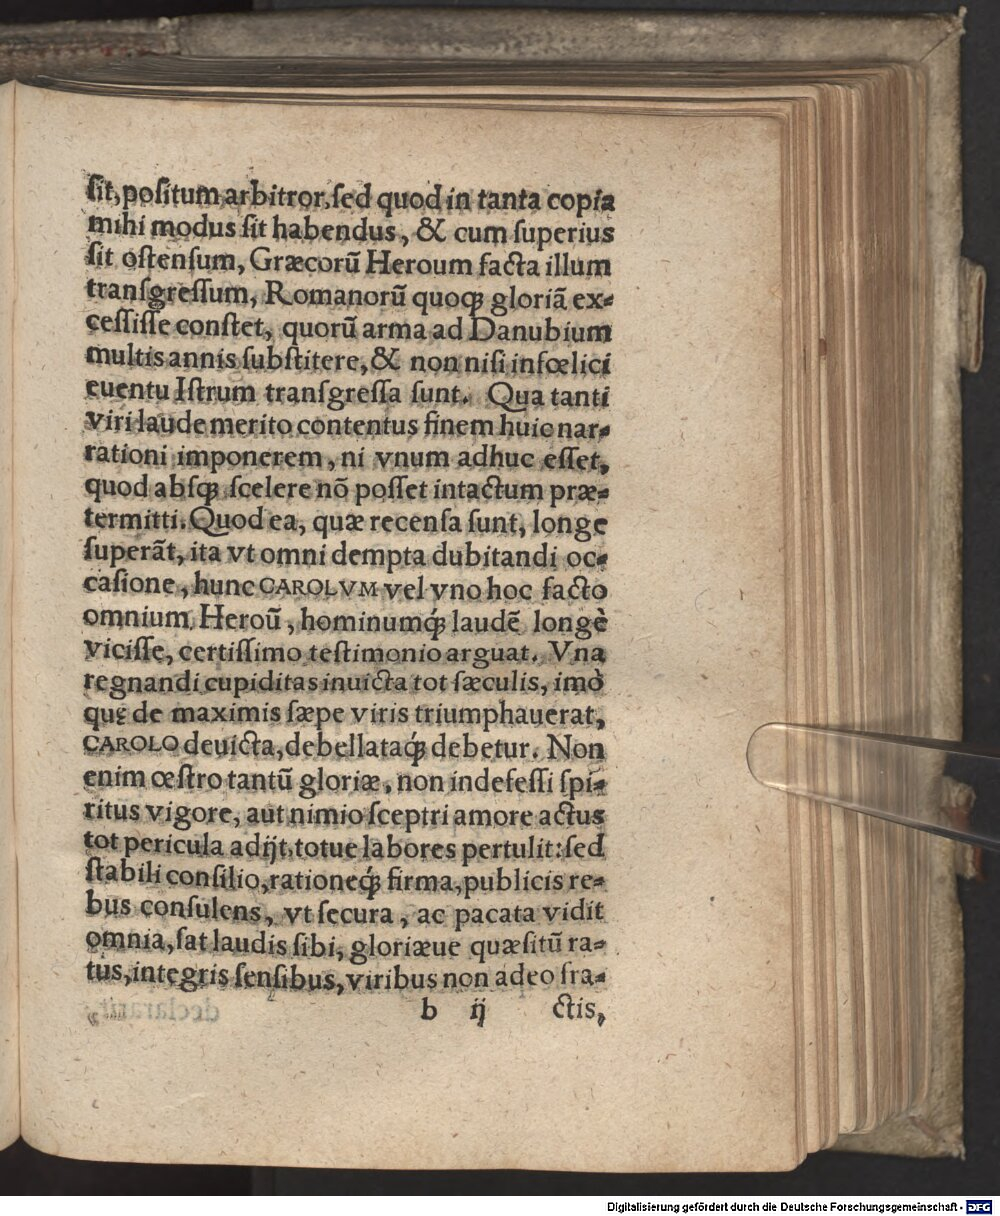 sit, positum arbitror, sed quod in tanta copia
mihi modus sit habendus, & cum superius
sit ostensum, Græcorũ Heroum facta illum
transgressum, Romanorũ quoq; gloriã ex-
cessisse constet, quorũ arma ad Danubium
multis annis substitere, & non nisi infœlici
euentu Istrum transgressa sunt. Qua tanti
viri laude merito contentus finem huic nar-
rationi imponerem, ni vnum adhuc esset,
quod absq; scelere nõ posset intactum præ-
termitti. Quod ea, quæ recensa sunt, longe
superãt, ita vt omni dempta dubitandi oc-
casione, hunc CAROLVM vel vno hoc facto
omnium Heroũ, hominumq́; laudẽ longè
vicisse, certissimo testimonio arguat. Vna
regnandi cupiditas inuicta tot sæculis, imò
quę de maximis sæpe viris triumphauerat,
CAROLO deuicta, debellataq́; debetur. Non
enim œstro tantũ gloriæ, non indefessi spi-
ritus vigore, aut nimio sceptri amore actus
tot pericula adijt, totue labores pertulit: sed
stabili consilio, rationeq́; firma, publicis re-
bus consulens, vt secura, ac pacata vidit
omnia, sat laudis sibi, gloriæue quæsitũ ra-
tus, integris sensibus, viribus non adeo fra-
b ij ctis,
Digitalisierung gefördert durch die Deutsche Forschungsgemeinschaft - DFG